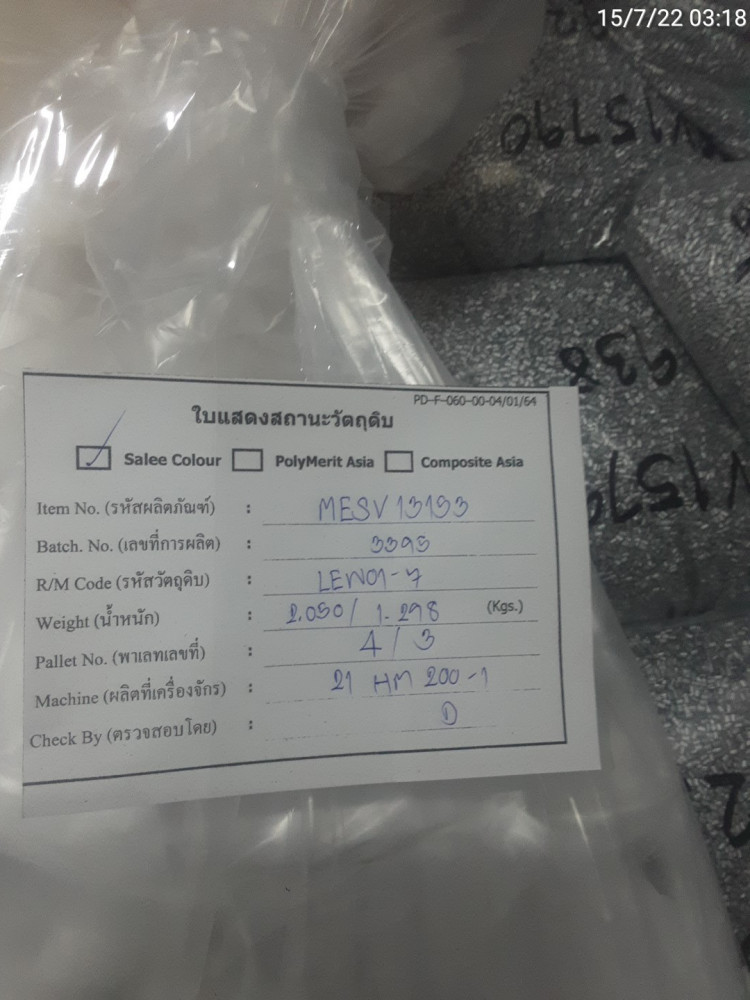 15/7/22 03:18
V15790
938
PD-F-060-00-04/01/64
ใบแสดงสถานะวัตถุดิบ
Salee Colour PolyMerit Asia Composite Asia
Item No. (รหัสผลิตภัณฑ์) : MESV 13193
Batch. No. (เลขที่การผลิต) : 3395
R/M Code (รหัสวัตถุดิบ) : LEW01-7
Weight (น้ำหนัก) : 2.050/ 1.298 (Kgs.)
Pallet No. (พาเลทเลขที่) : 4/3
Machine (ผลิตที่เครื่องจักร) : 21 HM 200-1
Check By (ตรวจสอบโดย) : D